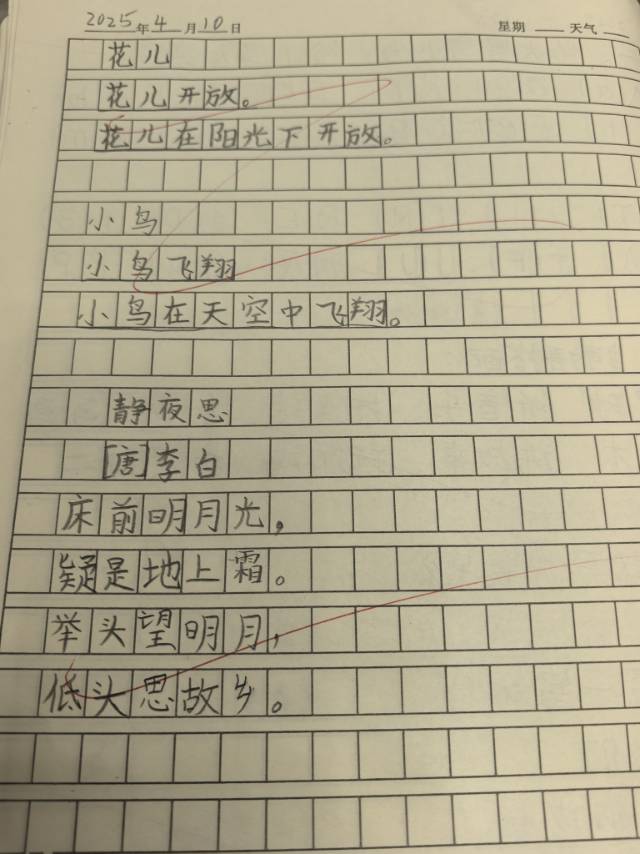 2025年4月10日 星期 天气
花儿
花儿开放。
花儿在阳光下开放。
小鸟
小鸟飞翔
小鸟在天空中飞翔。
静夜思
[唐]李白
床前明月光，
疑是地上霜。
举头望明月，
低头思故乡。